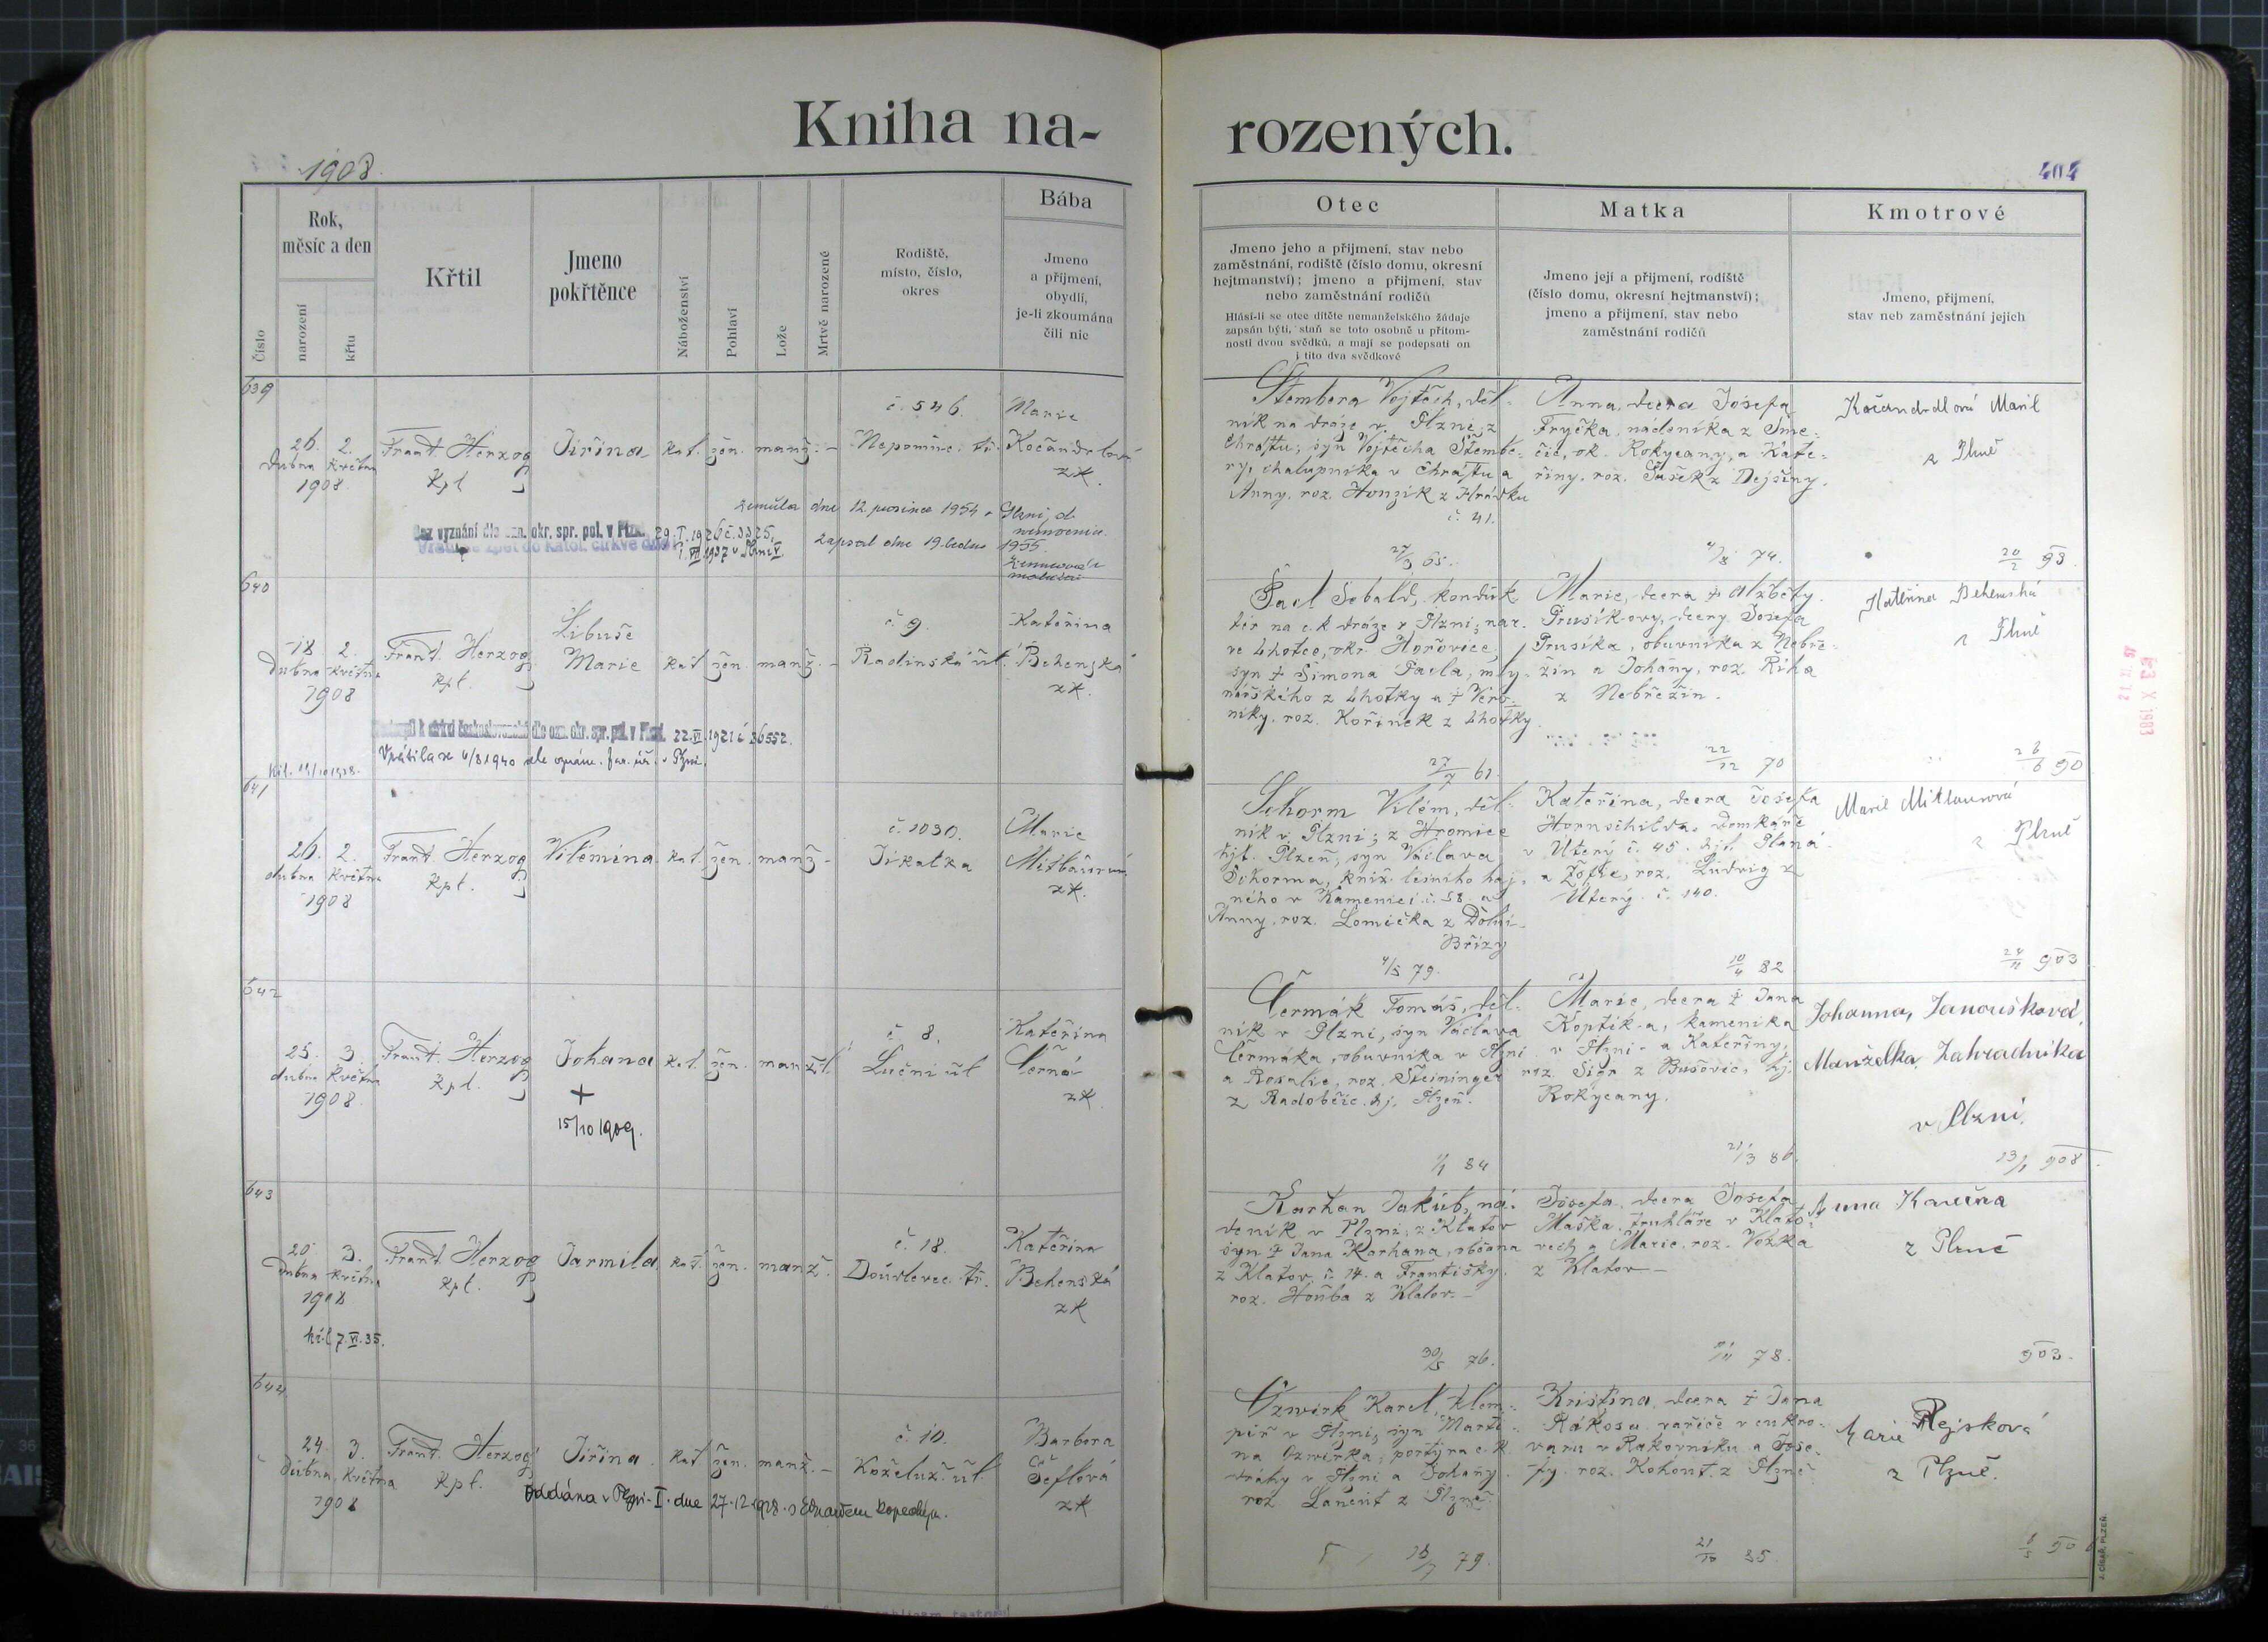 Kniha na-
rozených.
1908.
404
Číslo
Rok,
měsíc a den
narození
křtu
Křtil
Jmeno
pokřtěnce
Náboženství
Pohlaví
Lože
Mrtvě narozené
Rodiště,
místo, číslo,
okres
Bába
Jmeno
a příjmení,
obydlí,
je-li zkoumána
čili nic
Otec
Jmeno jeho a přijmení, stav nebo
zaměstnání, rodiště (číslo domu, okresní
hejtmanství); jmeno a přijmení, stav
nebo zaměstnání rodičů
Hlásí-li se otec dítěte nemanželského žádaje
zapsán býti, staň se toto osobně u přítom-
nosti dvou svědků, a mají se podepsati on
i tito dva svědkové
Matka
Jmeno její a přijmení, rodiště
(číslo domu, okresní hejtmanství);
jmeno a přijmení, stav nebo
zaměstnání rodičů
Kmotrové
Jmeno, přijmení,
stav neb zaměstnání jejich
639
26. 2.
dubna května
1908.
Frant. Herzog
Kpl.
Jiřina
kat. žen. manž. –
č. 546.
Nepomuc. tř.
Marie
Kočandrlová
zk.
zemřela dne 12. prosince 1954 v Plzni,
nemocnice
zapsal dne 19. ledna 1955.
Bez vyznání dle ozn. okr. spr. pol. v Plzni
Štembera Vojtěch, děl-
ník na dráze v Plzni; z
Chrástu; syn Vojtěcha Štembe-
ry, chalupníka v Chrástu a
Anny, roz. Honzík z Hrádku
č. 41.
27/3 65.
Anna, dcera Josefa
Fryčka, nádeníka z Sme-
čic, ok. Rokycany, a Kate-
řiny, roz. Sušek z Dejšiny.
4/8 74.
Kočandrdlová Marie
z Plzně
20/2 93.
640
18. 2.
dubna května
1908
Frant. Herzog
kpl.
Libuše
Marie
kat. žen. manž. –
č. 9.
Radinská ul.
Kateřina
Behenská
zk.
22. VI. 1921 č. 36552.
Vrátila se 4/8 1940 dle oznám. far. úř. v Plzni.
Pacl Sebald, konduk-
tér na c. k. dráze v Plzni; nar.
ve Lhotce, okr. Hořovice,
syn † Šimona Pacla, mly-
nářského z Lhotky a † Vero-
niky, roz. Kořínek z Lhotky.
27/7 61.
Marie, dcera † Alžběty
Prusík-ovy, dcery Josefa
Prusíka, obuvníka z Nebře-
žin a Johany, roz. Říha
z Nebřežin.
22/12 70
Kateřina Behenská
z Plzně
26/6 90
641
26. 2.
dubna května
1908
Frant. Herzog
kpl.
Vilémina
kat. žen. manž. –
č. 1030.
Jikalka
Marie
zk.
Schorm Vilém, děl-
ník v Plzni; z Hromice
hjt. Plzeň, syn Václava
Schorma, kníž. lesního haj-
ného v Kamenici č. 58. a
Anny, roz. Lomička z Dolní
Břízy
4/5 79.
Kateřina, dcera Josefa
Hornschilda, domkáře
v Úterý č. 45. hjt. Planá
a Žofie, roz. Ludwig z
Úterý č. 140.
10/4 82
Marie
z Plzně
28/11 903
642
25. 3.
dubna května
1908.
Frant. Herzog
kpl.
Johana
+
15/10 1909.
kat. žen. manž.
č. 8.
Luční ul.
Kateřina
Černá
zk.
Čermák Tomáš, děl-
ník v Plzni, syn Václava
Čermáka, obuvníka v Plzni
a Rosalie, roz. Šteininger
z Radobčic. hj. Plzeň.
1/1 84
Marie, dcera † Jana
Koptík-a, kameníka
v Plzni a Kateřiny,
roz. Sigr z Bušovic, hj.
Rokycany.
21/3 86.
Johanna Janoušková
Manželka Zahradníka
v Plzni.
13/1 908.
643
20. 3.
dubna května
1908
Frant. Herzog
kpl.
7. VI. 35.
Jarmila
kat. žen. manž.
č. 18.
Doudlevec. tř.
Kateřina
Behenská
zk
Karhan Jakub, ná-
deník v Plzni; z Klatov
syn † Jana Karhana, občana
z Klatov č. 14. a Františky
roz. Houba z Klatov. –
30/5 76.
Josefa, dcera Josefa
Maška, truhláře v Klato-
vech a Marie, roz. Vožka
z Klatov –
78.
Anna
z Plzně
903.
644
24. 3.
dubna května
1908
Frant. Herzog
kpl.
Jiřina
kat. žen. manž. –
č. 10.
Koželuž. ul.
Barbora
Šeflová
zk
Oddána v Plzni - I. dne 27. 12. 1928 s Eduardem Kopeckým.
Ozwirk Karel, klem-
píř v Plzni, syn Marti-
na Ozwirka, portýra c. k.
dráhy v Plzni a Johany
roz. Lancirt z Plzně.
18/7 79.
Kristina, dcera † Jana
Rákosa, vařiče v cukro-
varu v Rakovníku a Jose-
fy roz. Kohout z Plzně
21/10 85.
Marie Rejsková
z Plzně.
J. CÍSAŘ, PLZEŇ.